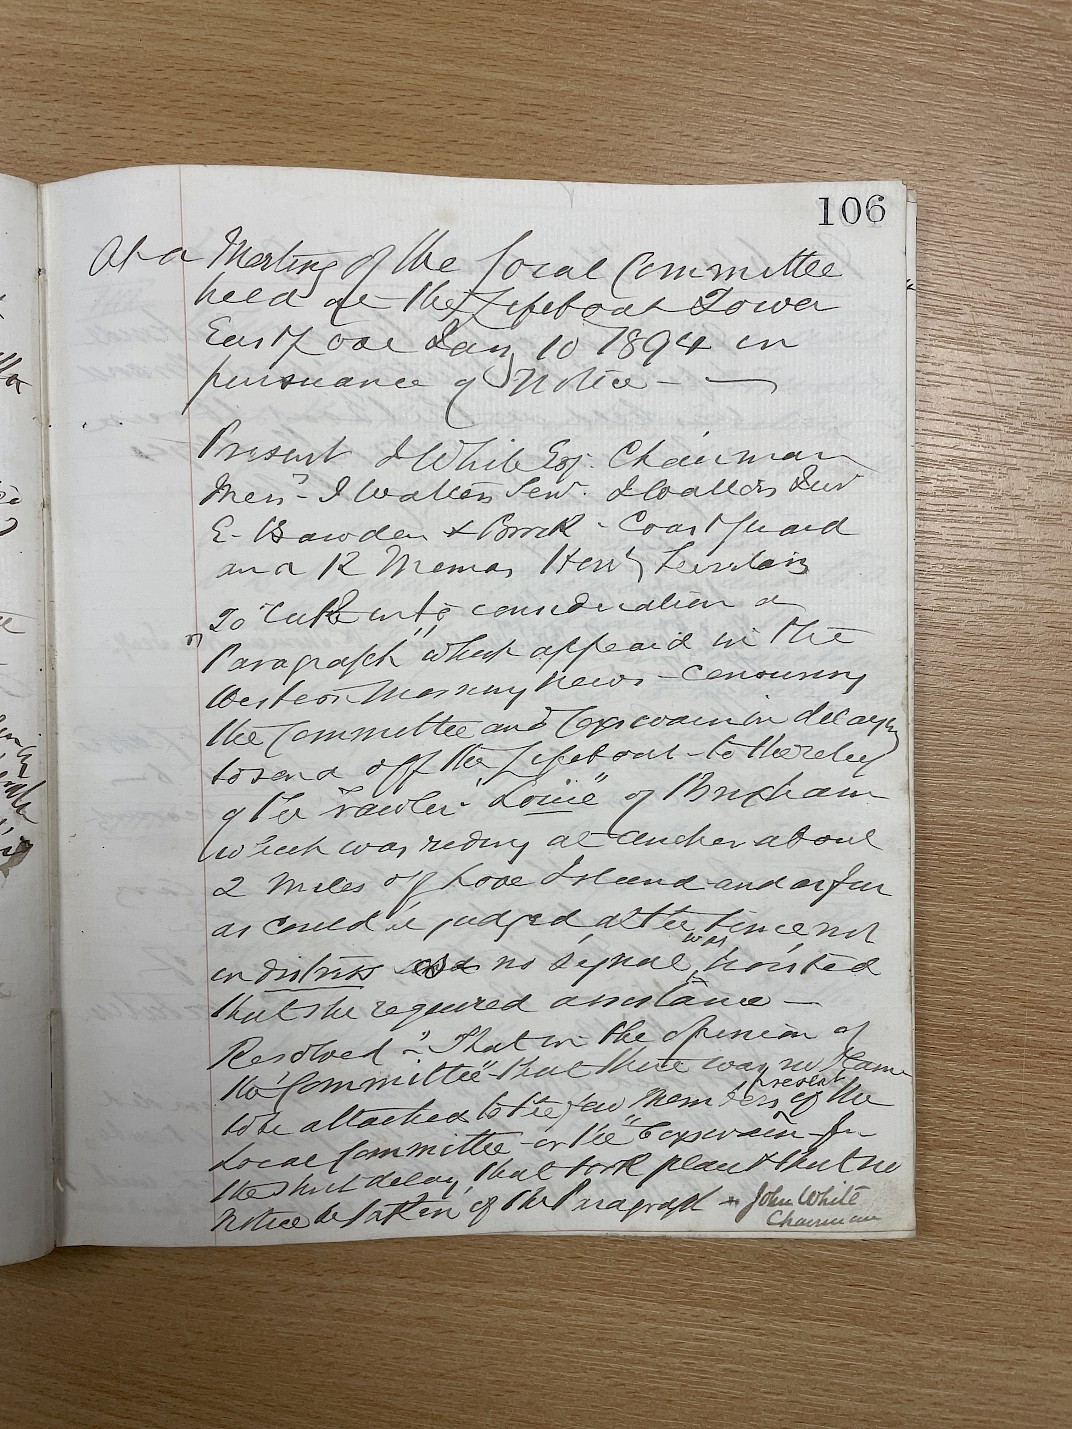 106
At a Meeting of the Local Committee
held at the Lifeboat Tower
East Looe Jany 10 1894 in
pursuance of Notice -
Present J White Esq. Chairman
Mess - J Walters Senr. J Walters Junr
E. Bawden & Brock - Coastguard
and R Thomas Hony Secretary
To take into consideration a
Paragraph which appeard in the
Western Morning News - censuring
the Committee and Coxswain in delaying
to send off the Lifeboat - to the relief
of the Trawler "Louie" of Brixham
which was riding at anchor about
2 miles off Looe Island and as far
as could be judged at the time not
in distress no signal was hoisted
that she required assistance -
Resolved - That in the opinion of
the Committee - that there was no blame
to be attached to the few Members present of the
Local Committee - or the Coxswain for
the short delay that took place & that no
Notice be taken of the Paragraph - John White
Chairman